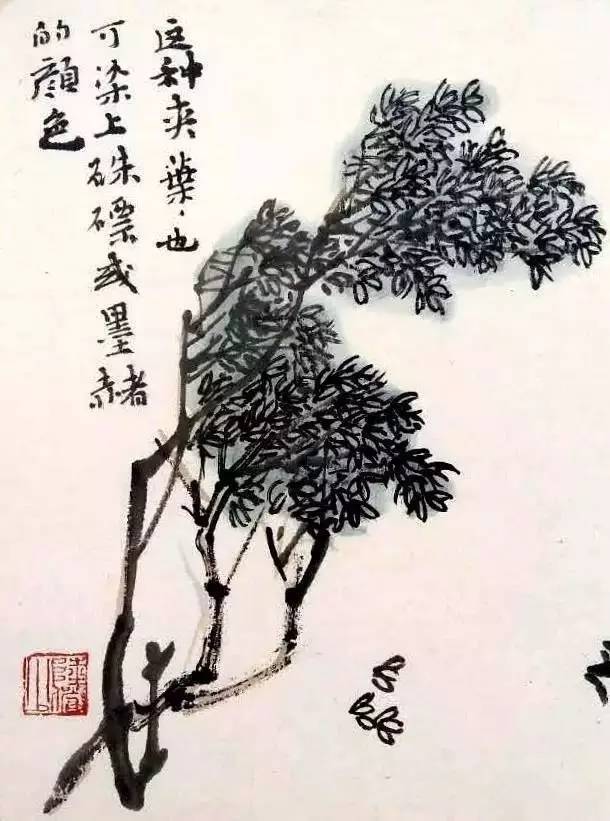 这种夹葉、也
可染上硃磦或墨赭
的顏色